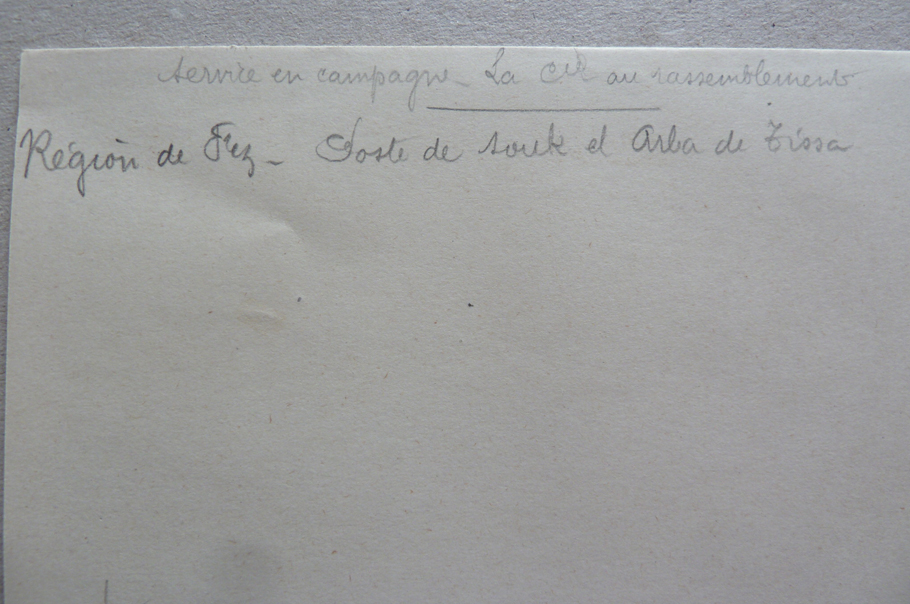 Service en campagne La Cie au rassemblement
Région de Fez - Poste de Souk el Arba de Tissa